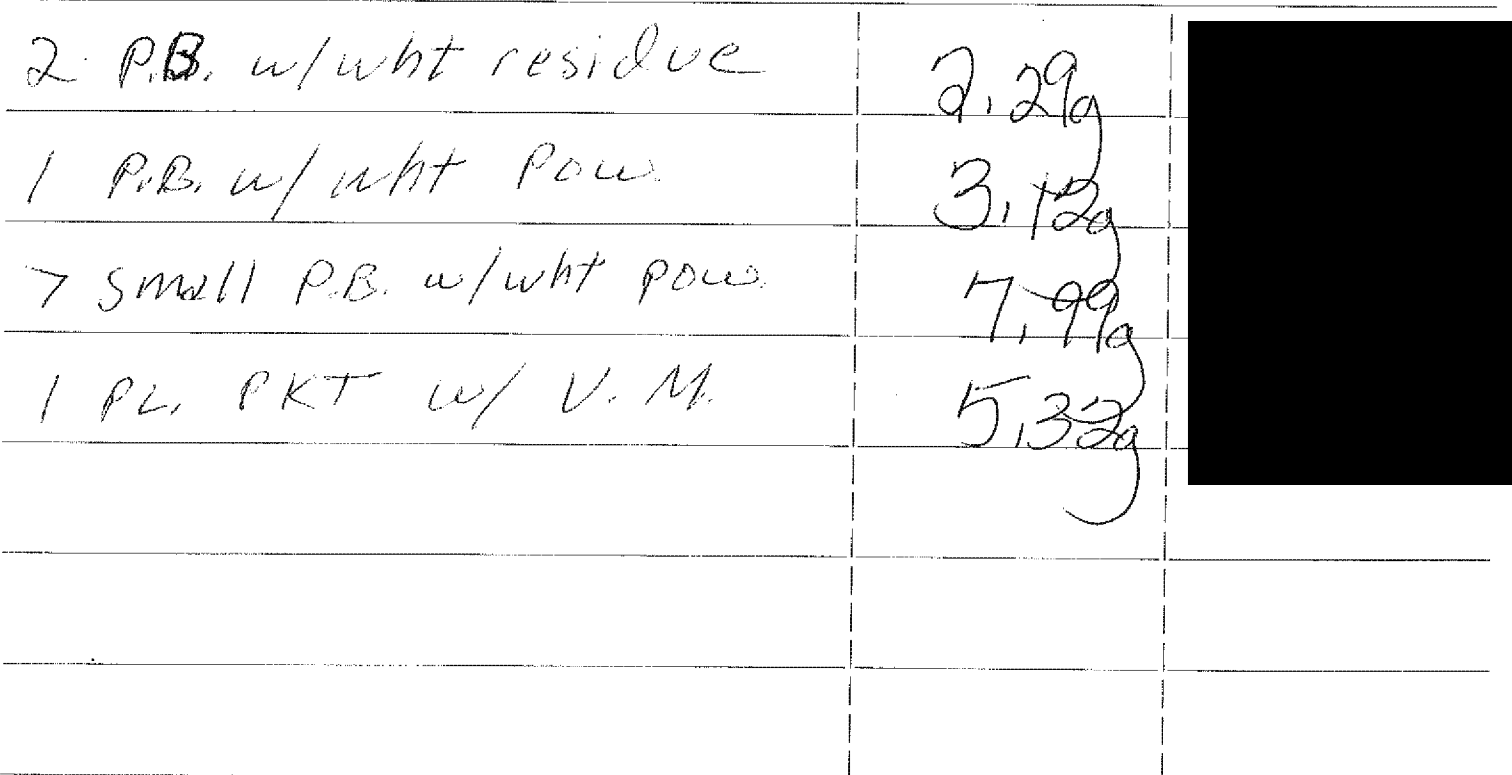 2 P.B. w/wht residue 2.29g
1 P.B. w/ wht Pow. 3.12g
7 small P.B. w/wht pow. 7.99g
1 PL. PKT w/ V. M. 5.32g